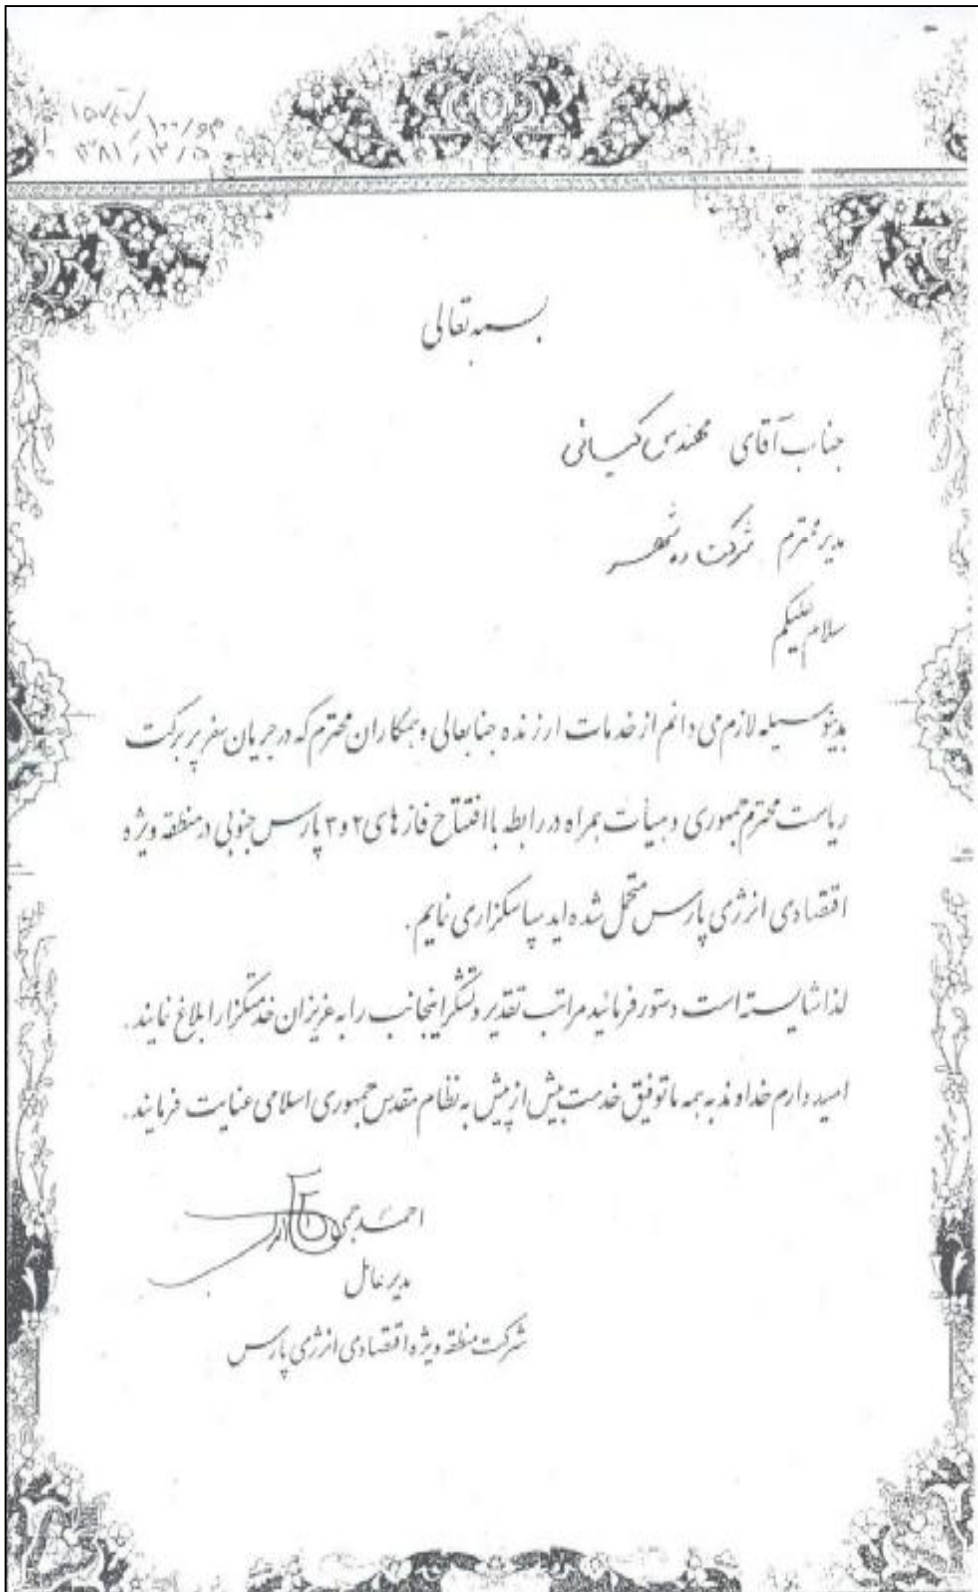 ۱۳۸۱/۱۲/۵
بسمه تعالی
جناب آقای مهندس کیسانی
مدیر محترم شرکت ره شهر
سلام علیکم
بدینوسیله لازم می دانم از خدمات ارزنده جنابعالی و همکاران محترم که در جریان سفر پر برکت
ریاست محترم جمهوری و هیأت همراه در رابطه با افتتاح فازهای ۲ و ۳ پارس جنوبی در منطقه ویژه
اقتصادی انرژی پارس متحمل شده اید سپاسگزاری نمایم.
لذا شایسته است دستور فرمائید مراتب تقدیر و تشکر اینجانب را به عزیزان خدمتگزار ابلاغ نمایند.
امید دارم خداوند به همه ما توفیق خدمت بیش از پیش به نظام مقدس جمهوری اسلامی عنایت فرمایند.
احمد
مدیر عامل
شرکت منطقه ویژه اقتصادی انرژی پارس